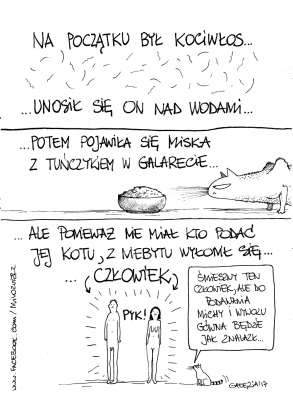 NA POCZĄTKU BYŁ KOCIWŁOS...
...UNOSIŁ SIĘ ON NAD WODAMI...
...POTEM POJAWIŁA SIĘ MISKA
Z TUŃCZYKIEM W GALARECIE...
...ALE PONIEWAŻ NIE MIAŁ KTO PODAĆ
JEJ KOTU, Z NIEBYTU WYŁONIŁ SIĘ...
...CZŁOWIEK
PYK!
ŚMIESZNY TEN
CZŁOWIEK, ALE DO
PODAWANIA
MICHY I WYWOZU
GÓWNA BĘDZIE
JAK ZNALAZŁ...